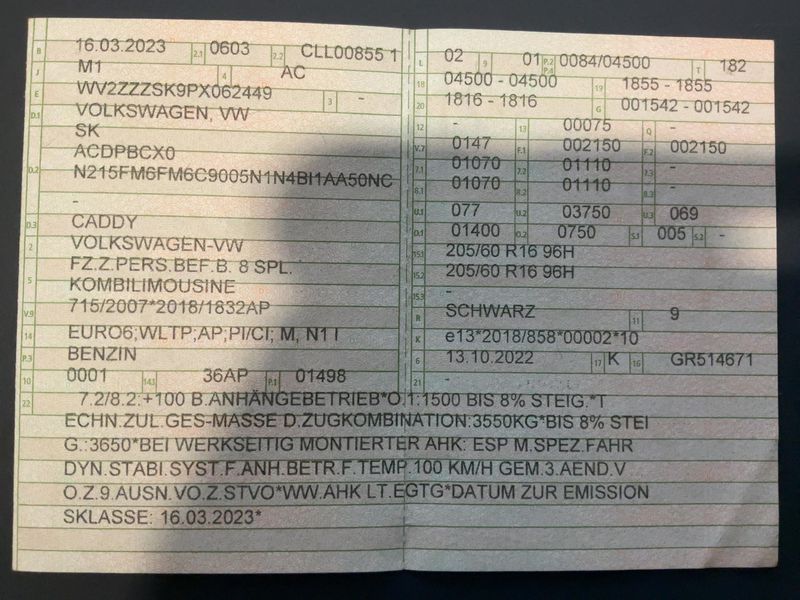 B 16.03.2023 2.1 0603 2.2 CLL00855 1
J M1 4 AC
E WV2ZZZSK9PX062449 3 -
D.1 VOLKSWAGEN, VW
SK
ACDPBCX0
D.2 N215FM6FM6C9005N1N4BI1AA50NC
-
D.3 CADDY
2 VOLKSWAGEN-VW
FZ.Z.PERS.BEF.B. 8 SPL.
5 KOMBILIMOUSINE
V.9 715/2007*2018/1832AP
14 EURO6;WLTP;AP;PI/CI; M, N1 I
P.3 BENZIN
10 0001 14.1 36AP P.1 01498
L 02 9 01 P.2 P.4 0084/04500 T 182
18 04500 - 04500 19 1855 - 1855
20 1816 - 1816 G 001542 - 001542
12 - 13 00075 Q -
V.7 0147 F.1 002150 F.2 002150
7.1 01070 7.2 01110 7.3 -
8.1 01070 8.2 01110 8.3 -
U.1 077 U.2 03750 U.3 069
O.1 01400 O.2 0750 S.1 005 S.2 -
15.1 205/60 R16 96H
15.2 205/60 R16 96H
15.3 -
R SCHWARZ 11 9
K e13*2018/858*00002*10
6 13.10.2022 17 K 16 GR514671
21 -
22 7.2/8.2:+100 B.ANHÄNGEBETRIEB*O.1:1500 BIS 8% STEIG.*T
ECHN.ZUL.GES-MASSE D.ZUGKOMBINATION:3550KG*BIS 8% STEI
G.:3650*BEI WERKSEITIG MONTIERTER AHK: ESP M.SPEZ.FAHR
DYN.STABI.SYST.F.ANH.BETR.F.TEMP.100 KM/H GEM.3.AEND.V
O.Z.9.AUSN.VO.Z.STVO*WW.AHK LT.EGTG*DATUM ZUR EMISSION
SKLASSE: 16.03.2023*